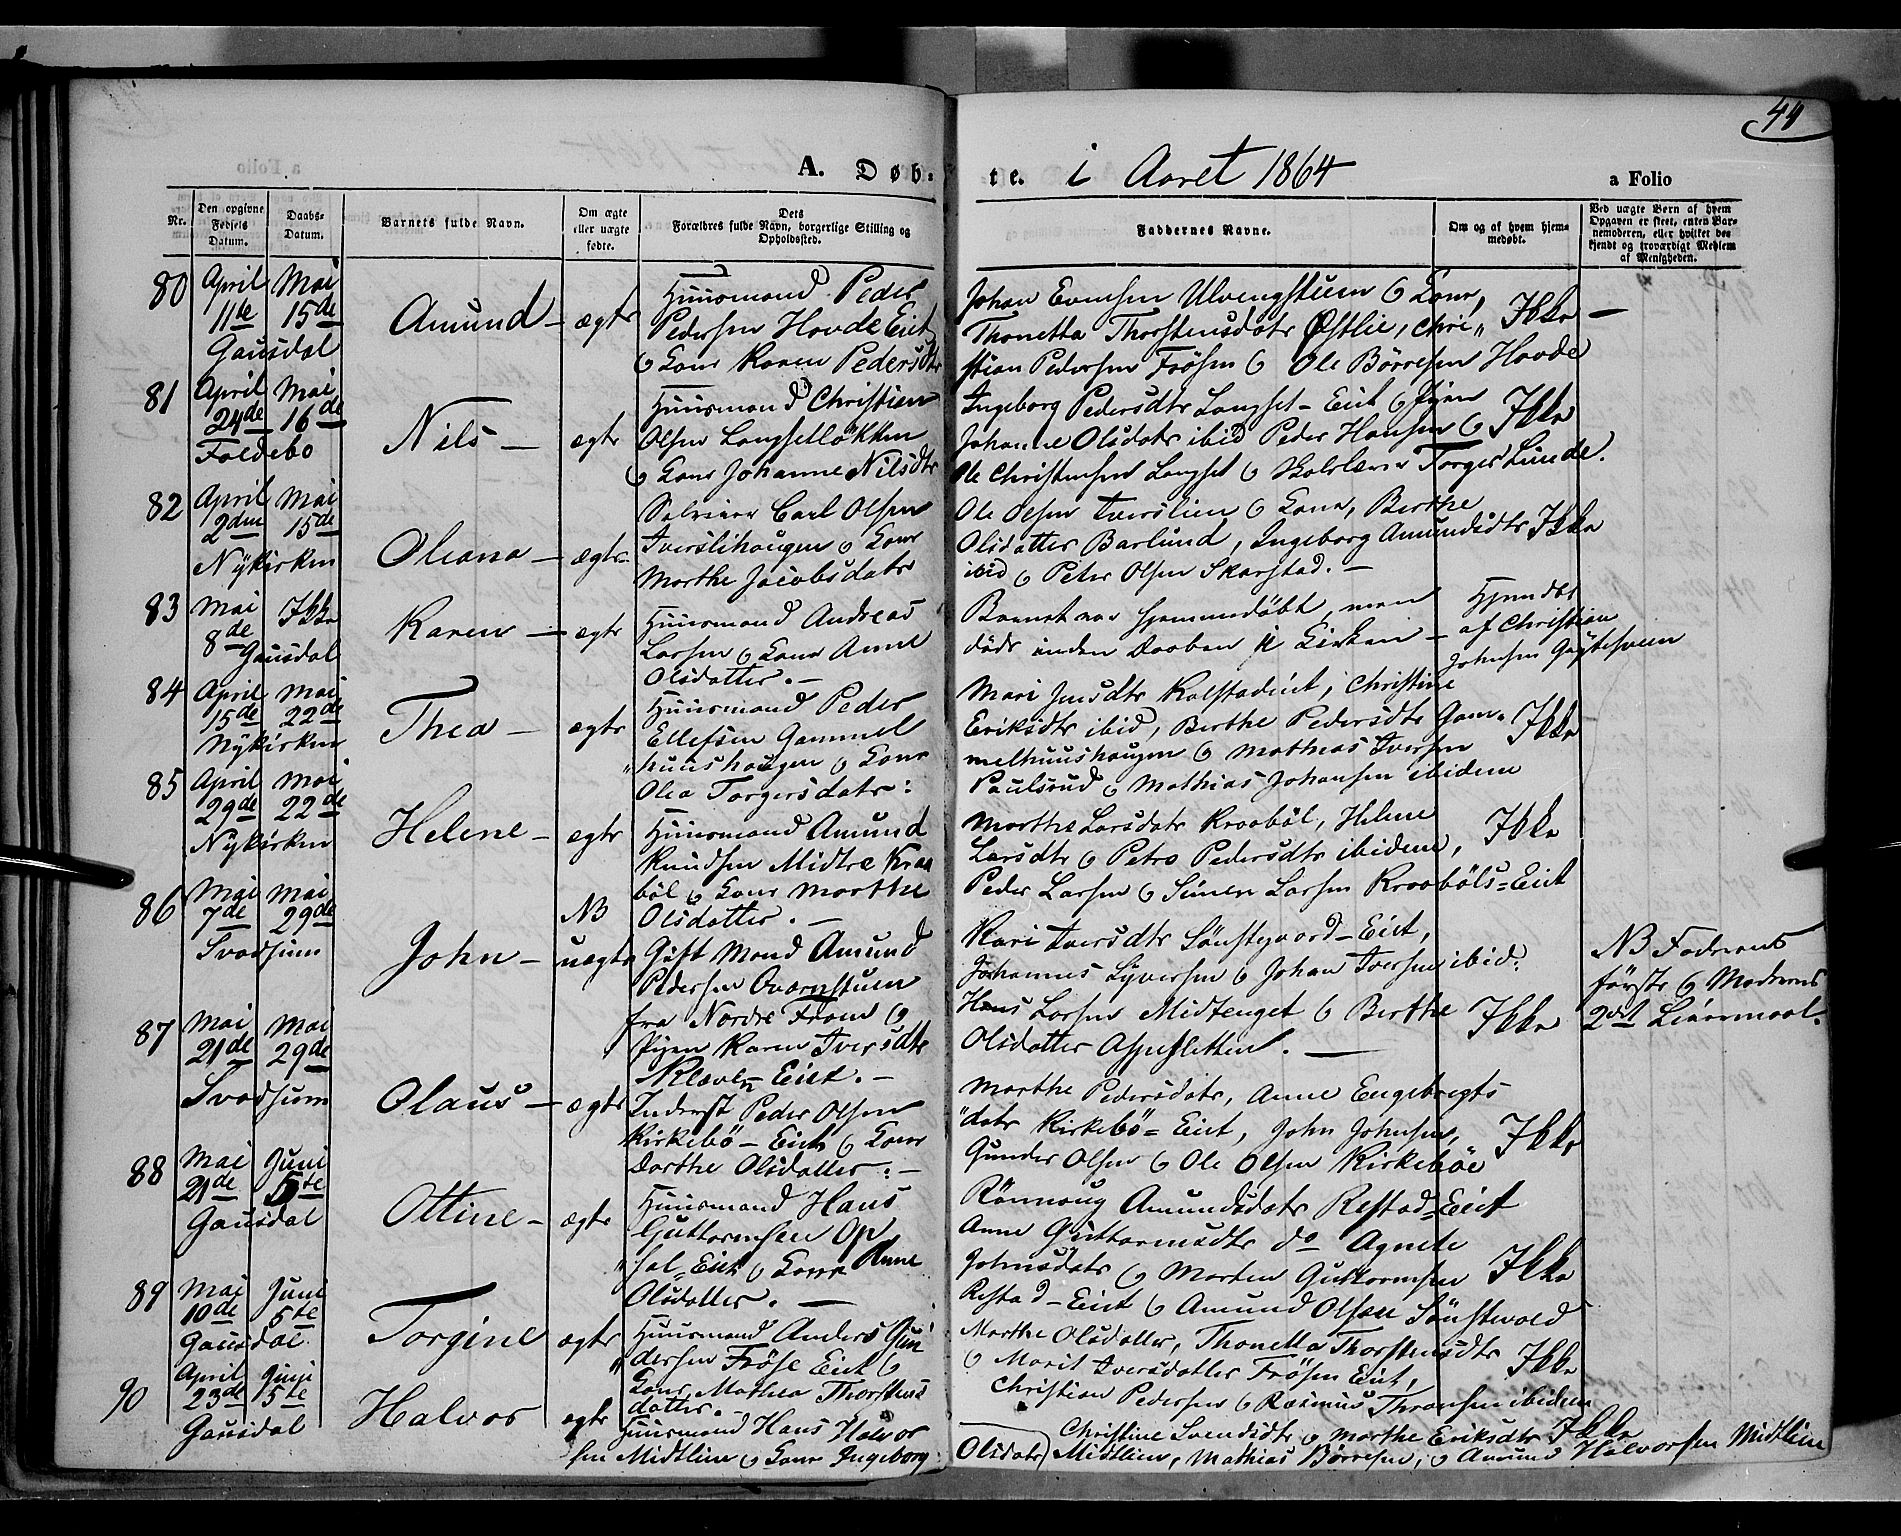 44
A. Døb- te. i Aaret 1864
a Folio
Nr.
Den opgivne Fødsels Datum.
Daabs-Datum.
Barnets fulde Navn.
Om ægte eller uægte fødte.
Dets Forældres fulde Navn, borgerlige Stilling og Opholdssted.
Faddernes Navne.
Om og af hvem hjemmedøbt.
Ved uægte Børn af hvem Opgaven er skeet, enten Barnemoderen, eller hvilket bekjendt og troværdigt Medlem af Menigheden.
80
April 11te
Mai 15de
Gausdal
Amund – ægte
Huusmand Peder
Pedersen Hovde Eiet
og Kone Karen Pedersdtr
Johan Evensen Ulvengstuen og Kone,
Thonetta Thorstensdatr Østlie, Chri"
stian Pedersen Frösen og Ole Börresen Hovde
Ikke –
81
April 24de
Mai 16de
Foldebo
Nils – ægte
Huusmand Christian
Olsen Langsetløkken
og Kone Johanne Nilsdtr
Ingeborg Pedersdtr Langset-Eiet og Pigen
Johanne Olsdatr ibid Peder Hansen og
Ole Christensen Langset og Skolelærer Torger Lunde.
Ikke
82
April 2den
Mai 15de
Nykirken
Oleana – ægte
Selveier Carl Olsen
Iverslihaugen og Kone
Marthe Jacobsdatr
Ole Olsen Iverslien og Kone, Berthe
Olsdatter Barlund, Ingeborg Amundsdtr
ibid og Peter Olsen Skarstad. –
Ikke
83
Mai 8de
Ikke
Gausdal
Karen – ægte
Huusmand Andreas
Larsen og Kone Anne
Olsdatter. –
Barnet var hjemmedöbt, men
döde inden Daaben i Kirken –
Hjemdbt
af Christian
Johnsen
84
April 15de
Mai 22de
Nykirken
Thea – ægte
Huusmand Peder
Ellefsen Gammel
"huushaugen og Kone
Olea Torgersdatr:
Mari Jensdtr Kalstadeiet, Christine
Eriksdtr ibid, Berthe Pedersdtr Gam-
melhuushaugen og Mathias Iversen
Paulsrud og Mathias Johansen ibidem
Ikke
85
April 29de
Mai 22de
Nykirken
Helene – ægte
Huusmand Amund
Knudsen Midtre Kraa
böl og Kone Marthe
Olsdatter. –
Marthe Larsdatr Kraaböl, Helene
Larsdtr og Petra Pedersdtr ibidem,
Peder Larsen og Simen Larsen Kraaböls-Eiet
Ikke
86
Mai 7de
Mai 29de
Svadsum
John – NB uægte
Gift Mand Amund
Pedersen Qvarnstuen
fra Nordre Fron og
Pigen Karen Iversdtr
Kleven Eiet. –
Kari Iversdtr Sönstegaard-Eiet,
Johannes Syversen og Johan Iversen ibid:
Hans Larsen Midtenget og Berthe
Olsdatter Aspesletten. –
Ikke
NB Faderens
förste og Moderens
2det Leiermaal.
87
Mai 21de
Mai 29de
Svadsum
Olaus – ægte
Inderst Peder Olsen
Kirkebö-Eiet og Kone
Dorthe Olsdatter: –
Marthe Pedersdatr, Anne Engebregts
"datr Kirkebö-Eiet, John Johnsen,
Gunder Olsen og Ole Olsen Kirkeböe
Ikke
88
Mai 21de
Juni 5te
Gausdal
Ottine – ægte
Huusmand Hans
Guttormsen Op
"sal-Eiet og Kone Anne
Olsdatter. –
Rönnoug Amundsdatr Refstad-Eiet
Anne Guttormsdtr do Agnete
Johnsdatr og Morten Guttormsen
Refstad-Eiet og Amund Olsen Sönstevold
Ikke
89
Mai 10de
Juni 5te
Gausdal
Torgine – ægte
Huusmand Anders Gun
"dersen Fröse Eiet og
Kone Mathea Thorstens
datter. –
Marthe Olsdatter, Thonetta Thorstensdtr
og Marit Iversdatter Frösen Eiet,
Christian Pedersen og Rasmus Thronsen ibidem
Ikke
90
April 23de
Juni 5te
Gausdal
Halvor – ægte
Huusmand Hans Halvor
sen Midtlien og Kone Ingeborg
Olsdatr)
Christine Svendsdtr og Marthe Eriksdtr
Midtlien, Mathias Börresen, og Amund Halvorsen Midtlien
Ikke